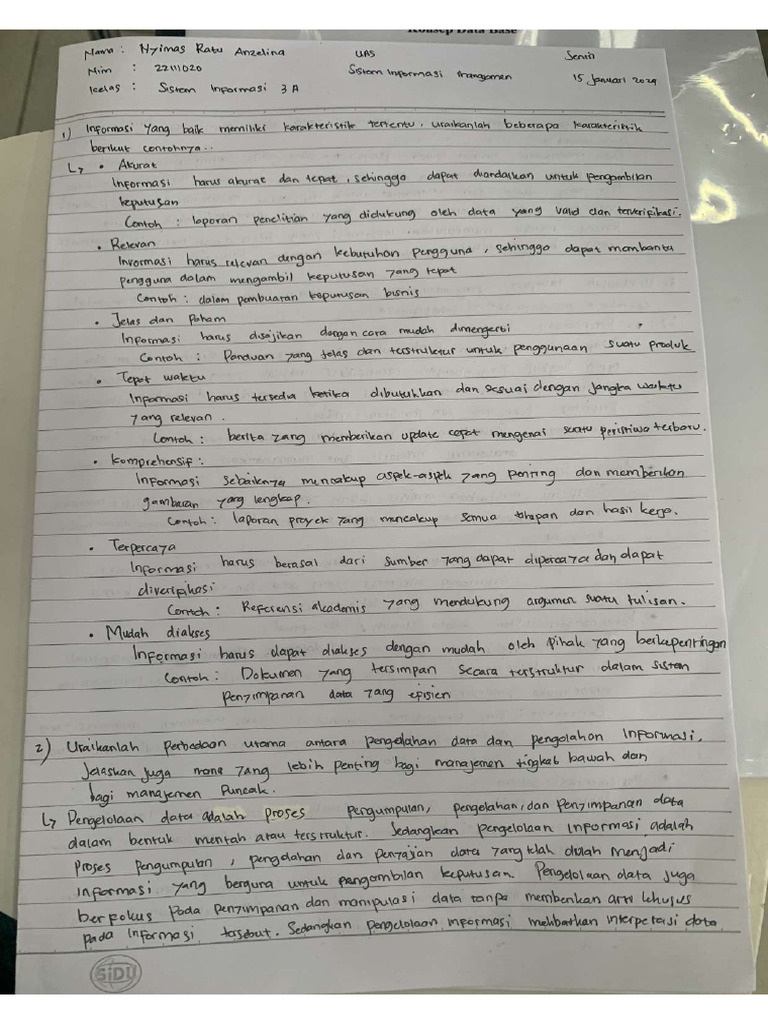 Konsep Data Base
Nama : Nyimas Ratu Anzelina UAS Senin
Nim : 22111020 Sistem Informasi Manajemen 15 Januari 2024
Kelas : Sistem Informasi 3A
1) Informasi yang baik memiliki karakteristik tertentu, uraikanlah beberapa karakteristik
berikut contohnya..
↳ • Akurat
Informasi harus akurat dan tepat, sehingga dapat diandalkan untuk pengambilan
keputusan
Contoh : laporan penelitian yang didukung oleh data yang valid dan terverifikasi.
• Relevan
Invormasi harus relevan dengan kebutuhan pengguna, sehingga dapat membantu
pengguna dalam mengambil keputusan yang tepat
Contoh : dalam pembuatan keputusan bisnis
• Jelas dan Paham
Informasi harus disajikan dengan cara mudah dimengerti
Contoh : Panduan yang jelas dan terstruktur untuk penggunaan suatu produk
• Tepat waktu
Informasi harus tersedia ketika dibutuhkan dan sesuai dengan jangka waktu
yang relevan.
Contoh : berita yang memberikan update cepat mengenai suatu peristiwa terbaru.
• Komprehensif :
Informasi sebaiknya mencakup aspek-aspek yang penting dan memberikan
gambaran yang lengkap.
Contoh : laporan proyek yang mencakup semua tahapan dan hasil kerja.
• Terpercaya
Informasi harus berasal dari sumber yang dapat dipercaya dan dapat
diverifikasi
Contoh : Referensi akademis yang mendukung argumen suatu tulisan.
• Mudah diakses
Informasi harus dapat diakses dengan mudah oleh pihak yang berkepentingan
Contoh : Dokumen yang tersimpan secara terstruktur dalam sistem
penyimpanan data yang efisien
2) Uraikanlah perbedaan utama antara pengolahan data dan pengolahan Informasi,
Jelaskan juga mana yang lebih penting bagi manajemen tingkat bawah dan
bagi manajemen Puncak.
↳ Pengelolaan data adalah proses pergumpulan, pengelahan, dan penyimpanan data
dalam bentuk mentah atau terstruktur. Sedangkan pengelolaan informasi adalah
proses pengumpulan, pengolahan dan penyajian data yang telah diolah menjadi
informasi yang berguna untuk pengambilan keputusan. Pengelolaan data juga
berfokus pada penyimpanan dan manipulasi data tanpa memberikan arti khusus
pada informasi tersebut. Sedangkan pengelolaan informasi melibatkan interpetasi data
SiDU